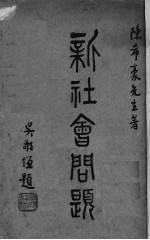 陳希豪先生著
新社會問題
吳敬恆題